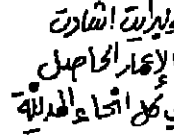 وليرانيت اشادت
الإعمار الحاصل
في كل انحاء المدينة